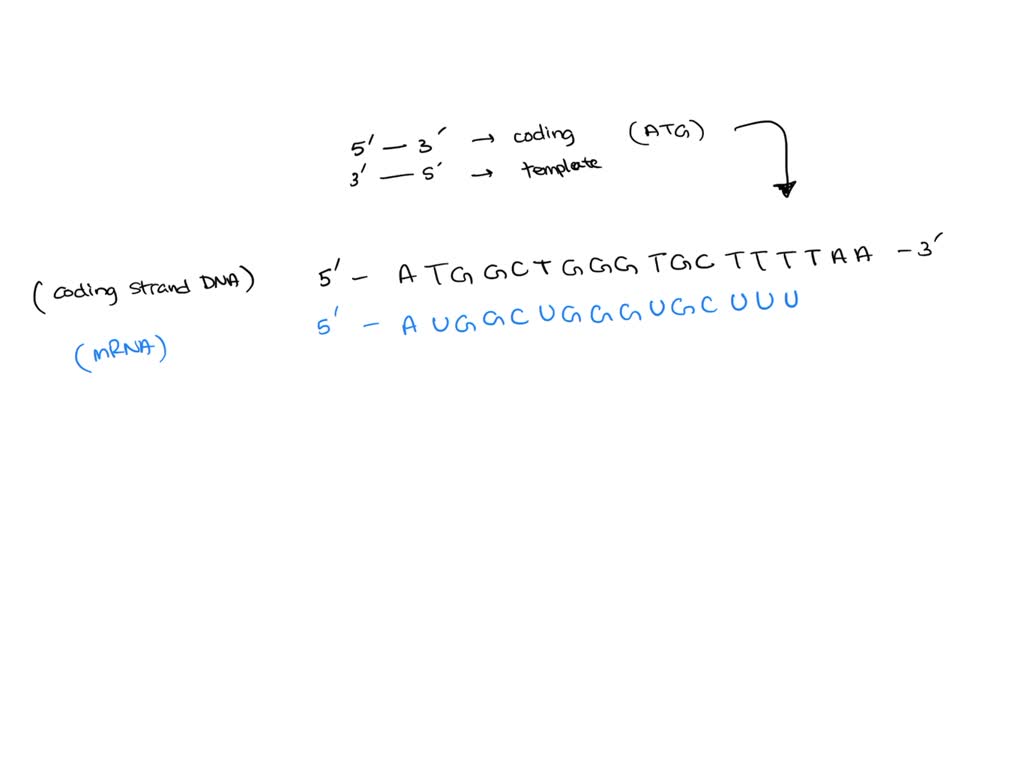 5' — 3' → coding (ATG)
3' — 5' → template
(coding strand DNA) 5' - ATGGCTGGGTGCTTTTAA - 3'
(mRNA) 5' - AUGGCUGGGUGCUUU